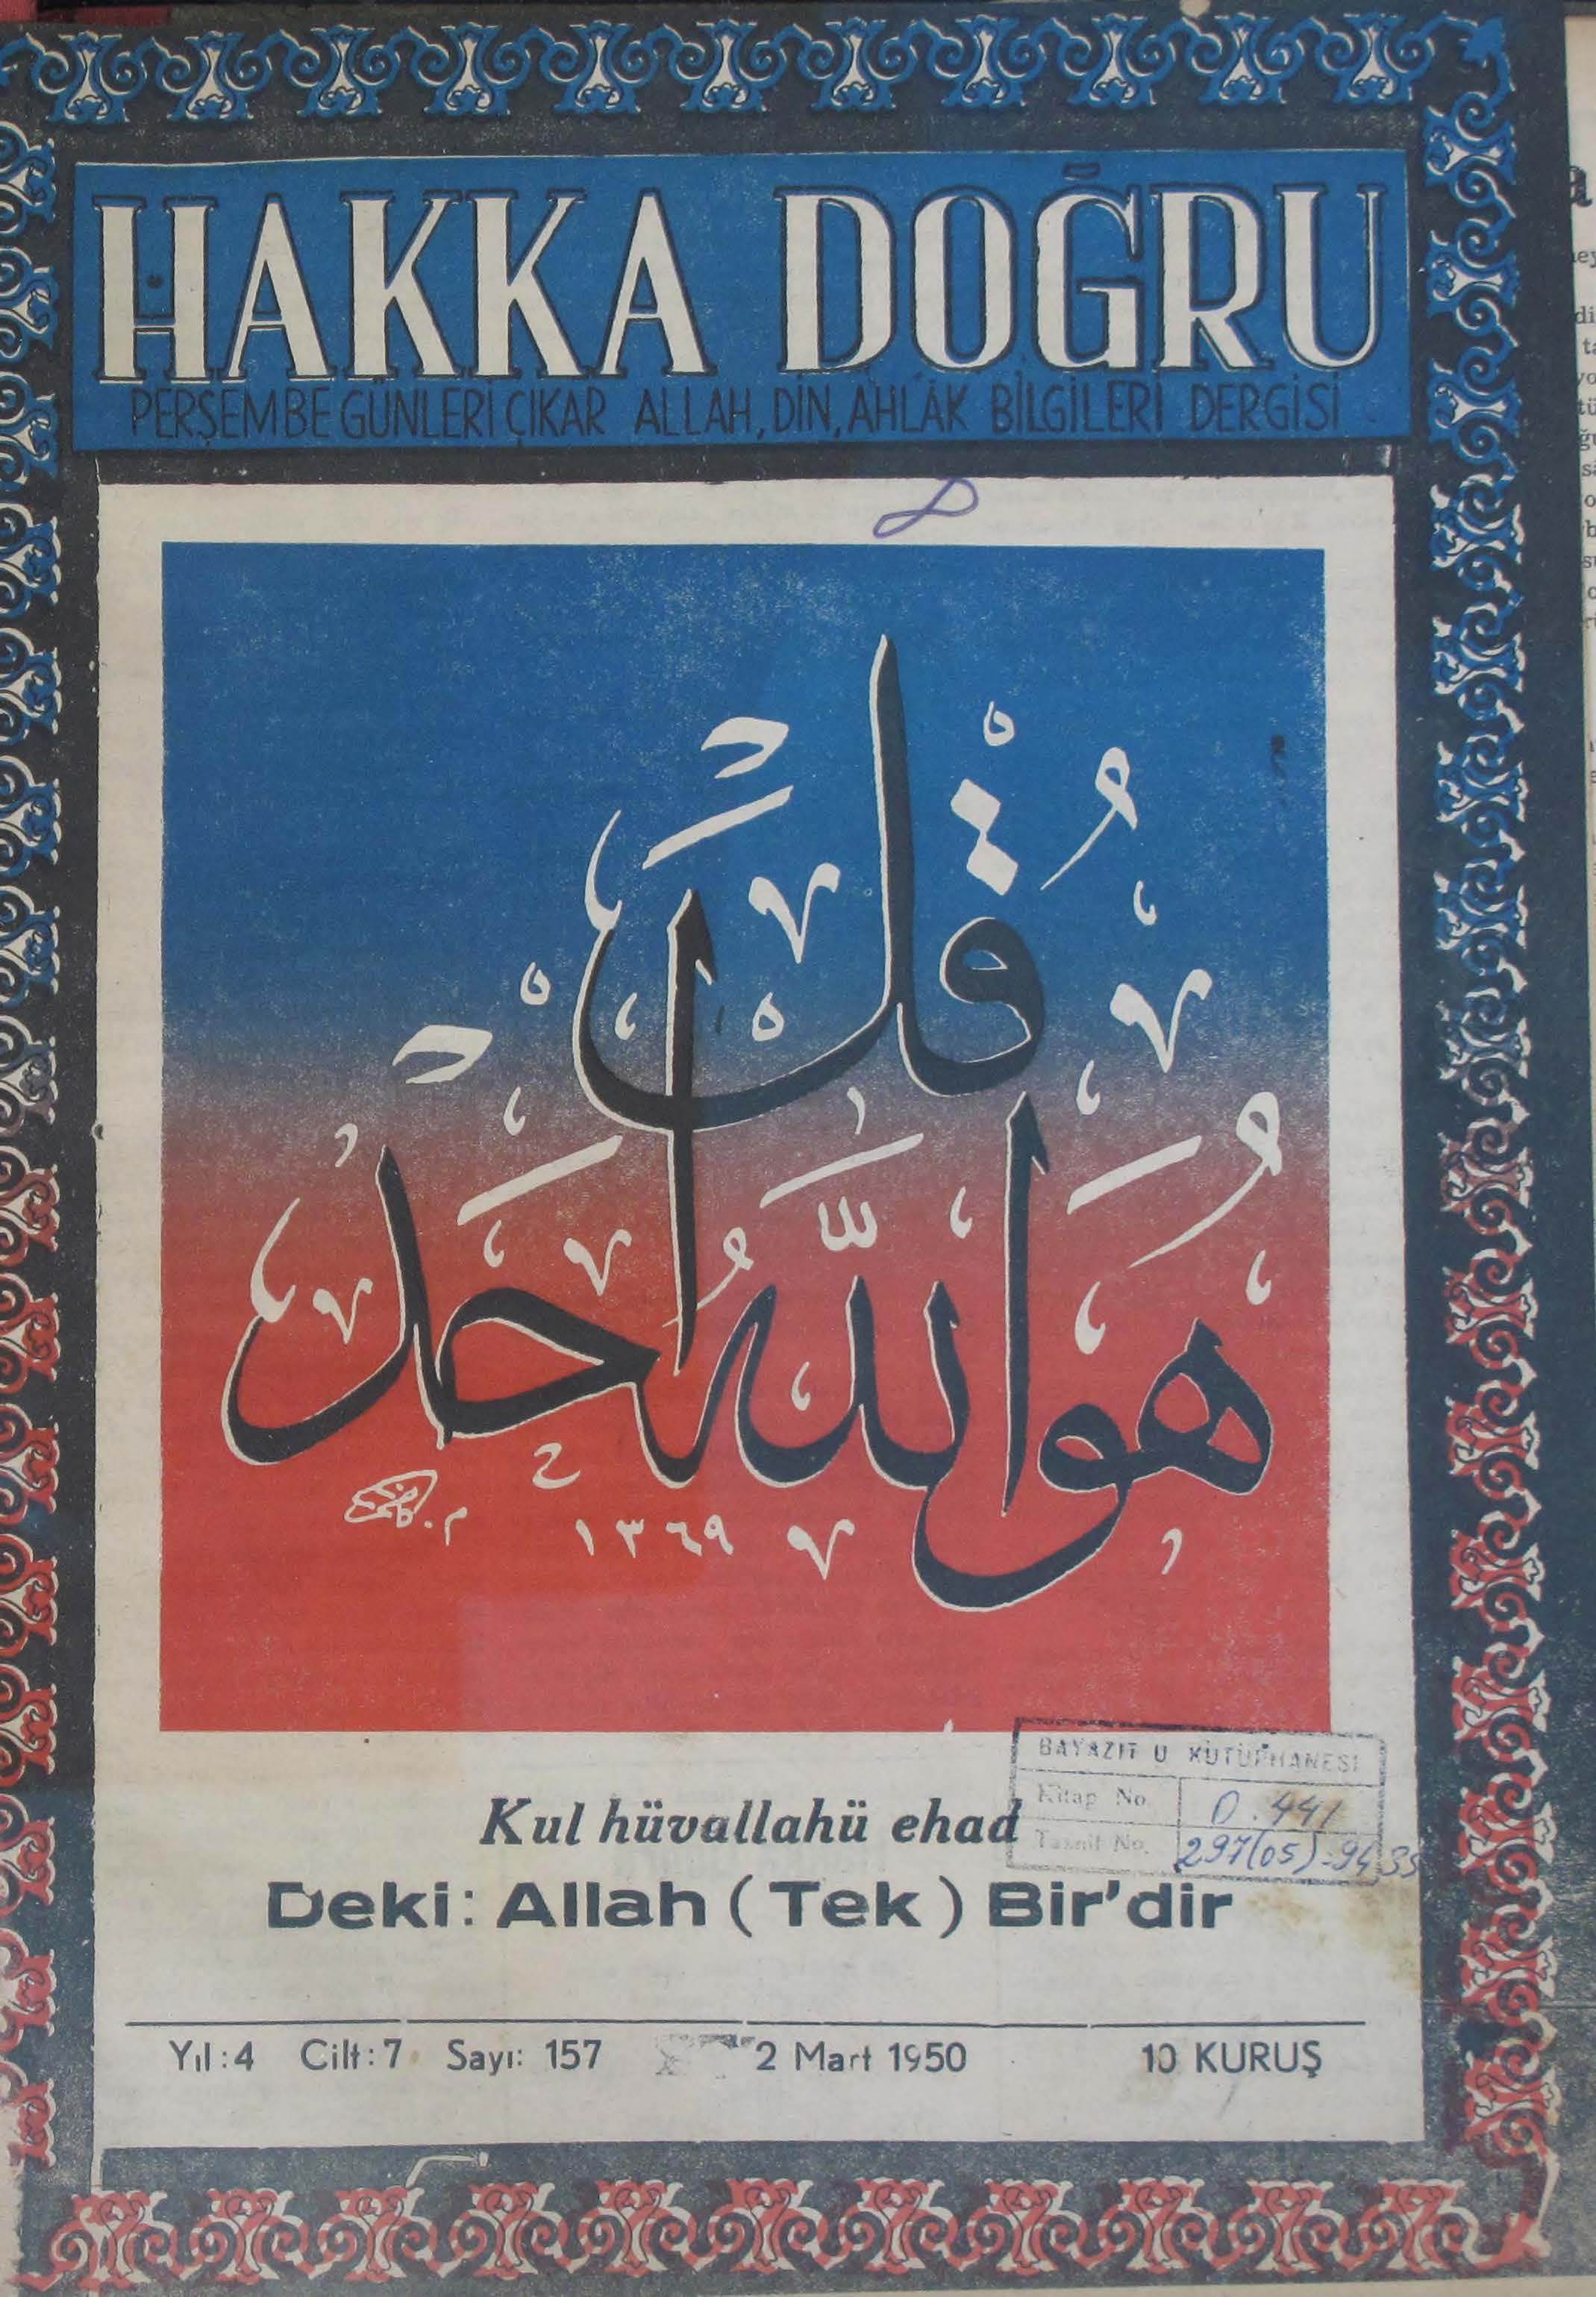 HAKKA DOĞRU
PERŞEMBE GÜNLERİ ÇIKAR ALLAH, DİN, AHLÂK BİLGİLERİ DERGİSİ
قُلْ
هُوَ اللّٰهُ اَحَدٌ
١٣٦٩
BAYAZIT U KÜTÜPHANESİ
Kitap No. D. 441
Tasnif No. 297(05)=9435
Kul hüvallahü ehad
Deki: Allah (Tek) Bir'dir
Yıl:4 Cilt:7 Sayı: 157 2 Mart 1950 10 KURUŞ